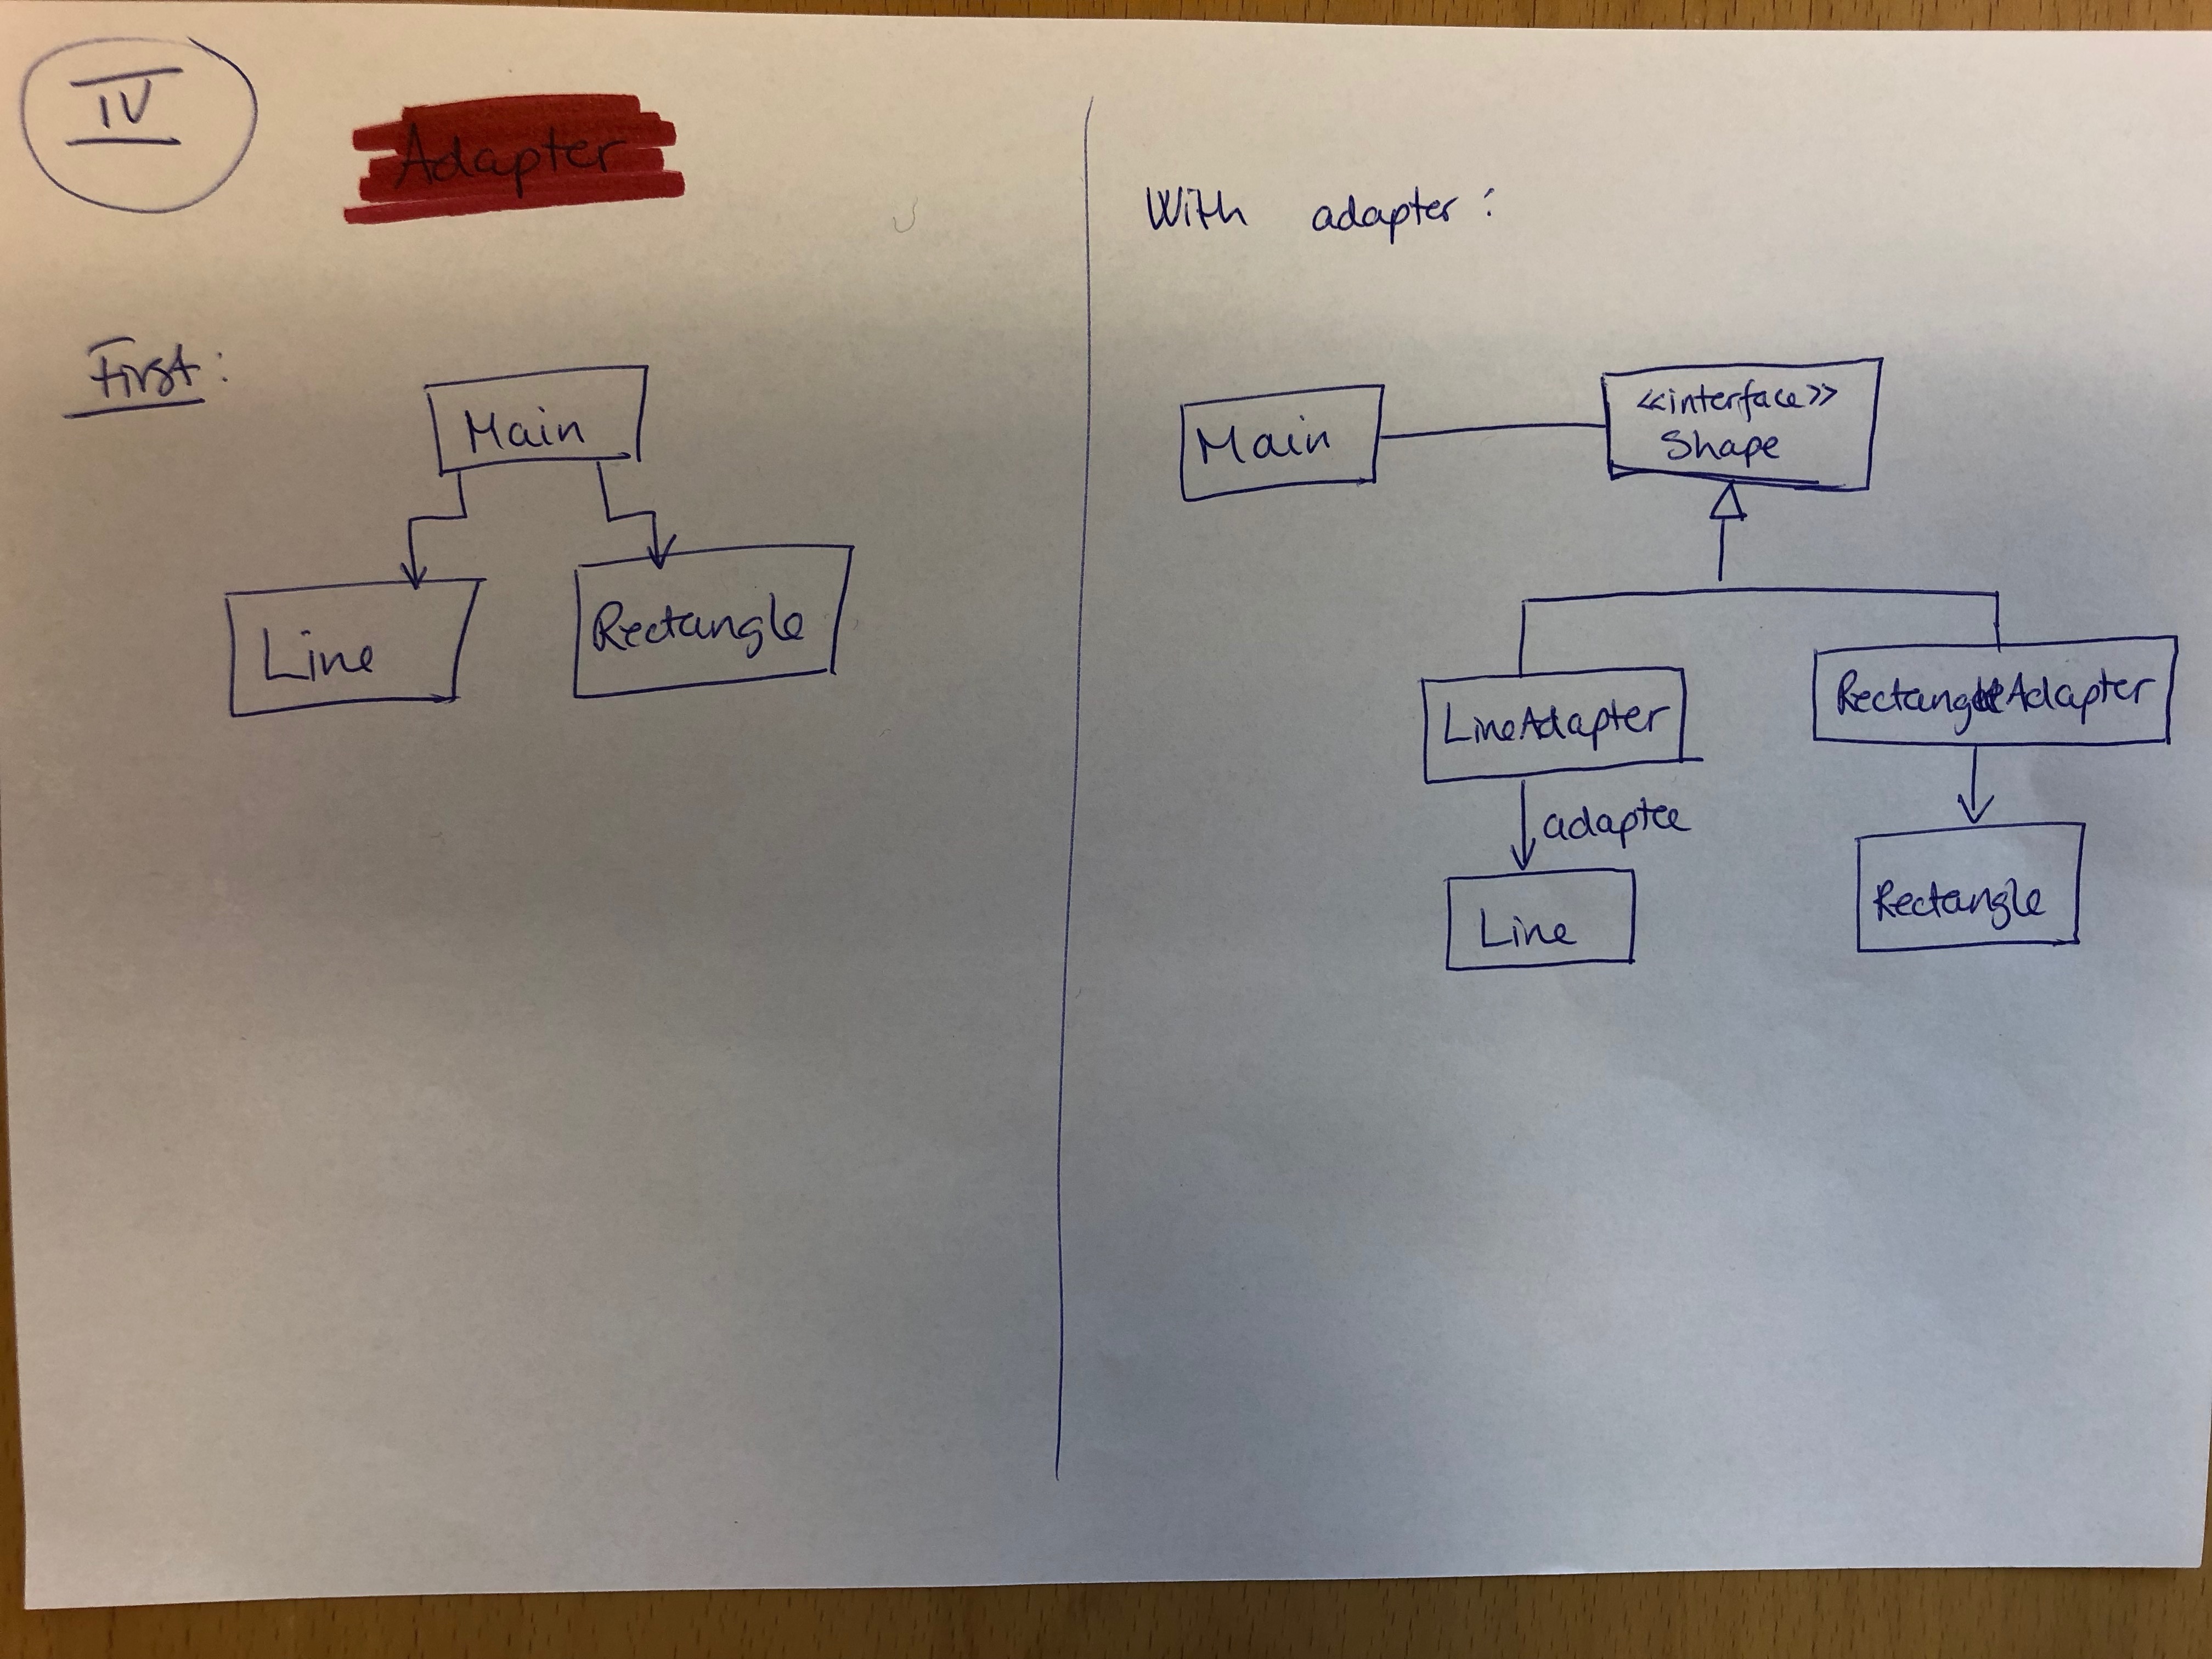 IV
Adapter
First:
Main
Line
Rectangle
With adapter:
Main
<<interface>>
Shape
LineAdapter
RectangleAdapter
adaptee
Line
Rectangle